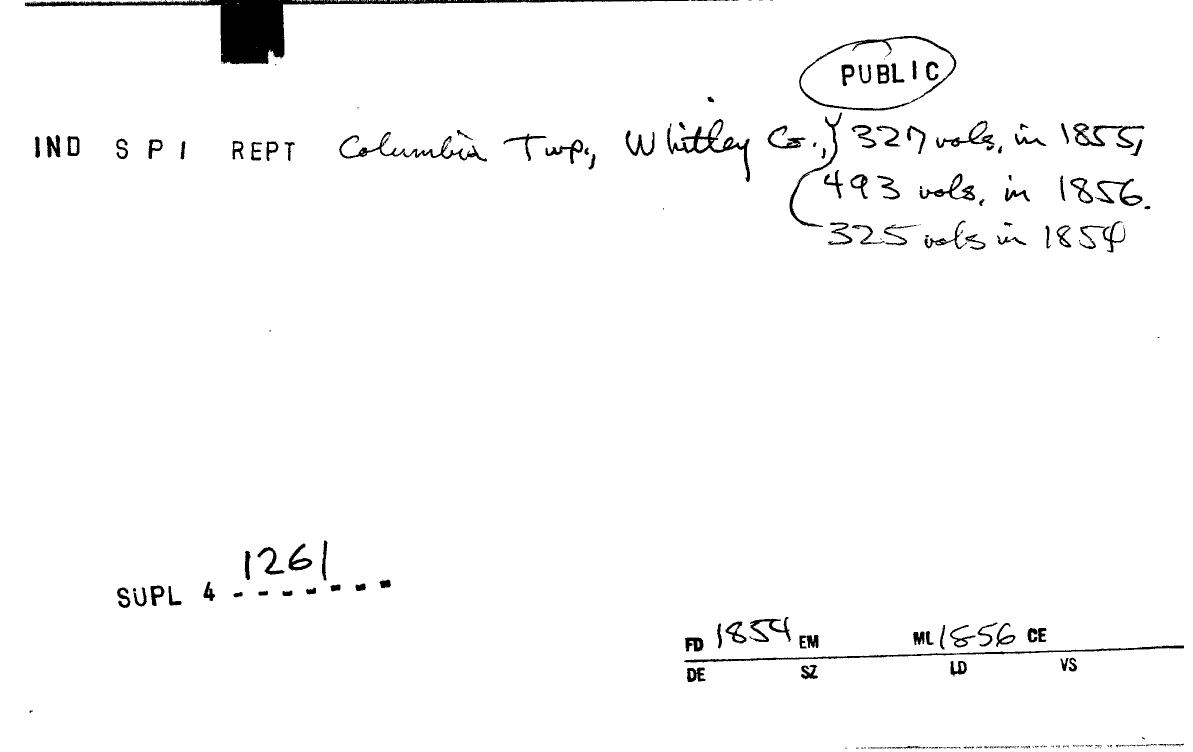 PUBLIC
IND S P I REPT Columbia Twp., Whitley Co., 327 vols, in 1855,
493 vols. in 1856.
325 vols in 1854
1261
SUPL 4 - - - - - - -
FD 1854 EM ML 1856 CE
DE SZ LD VS